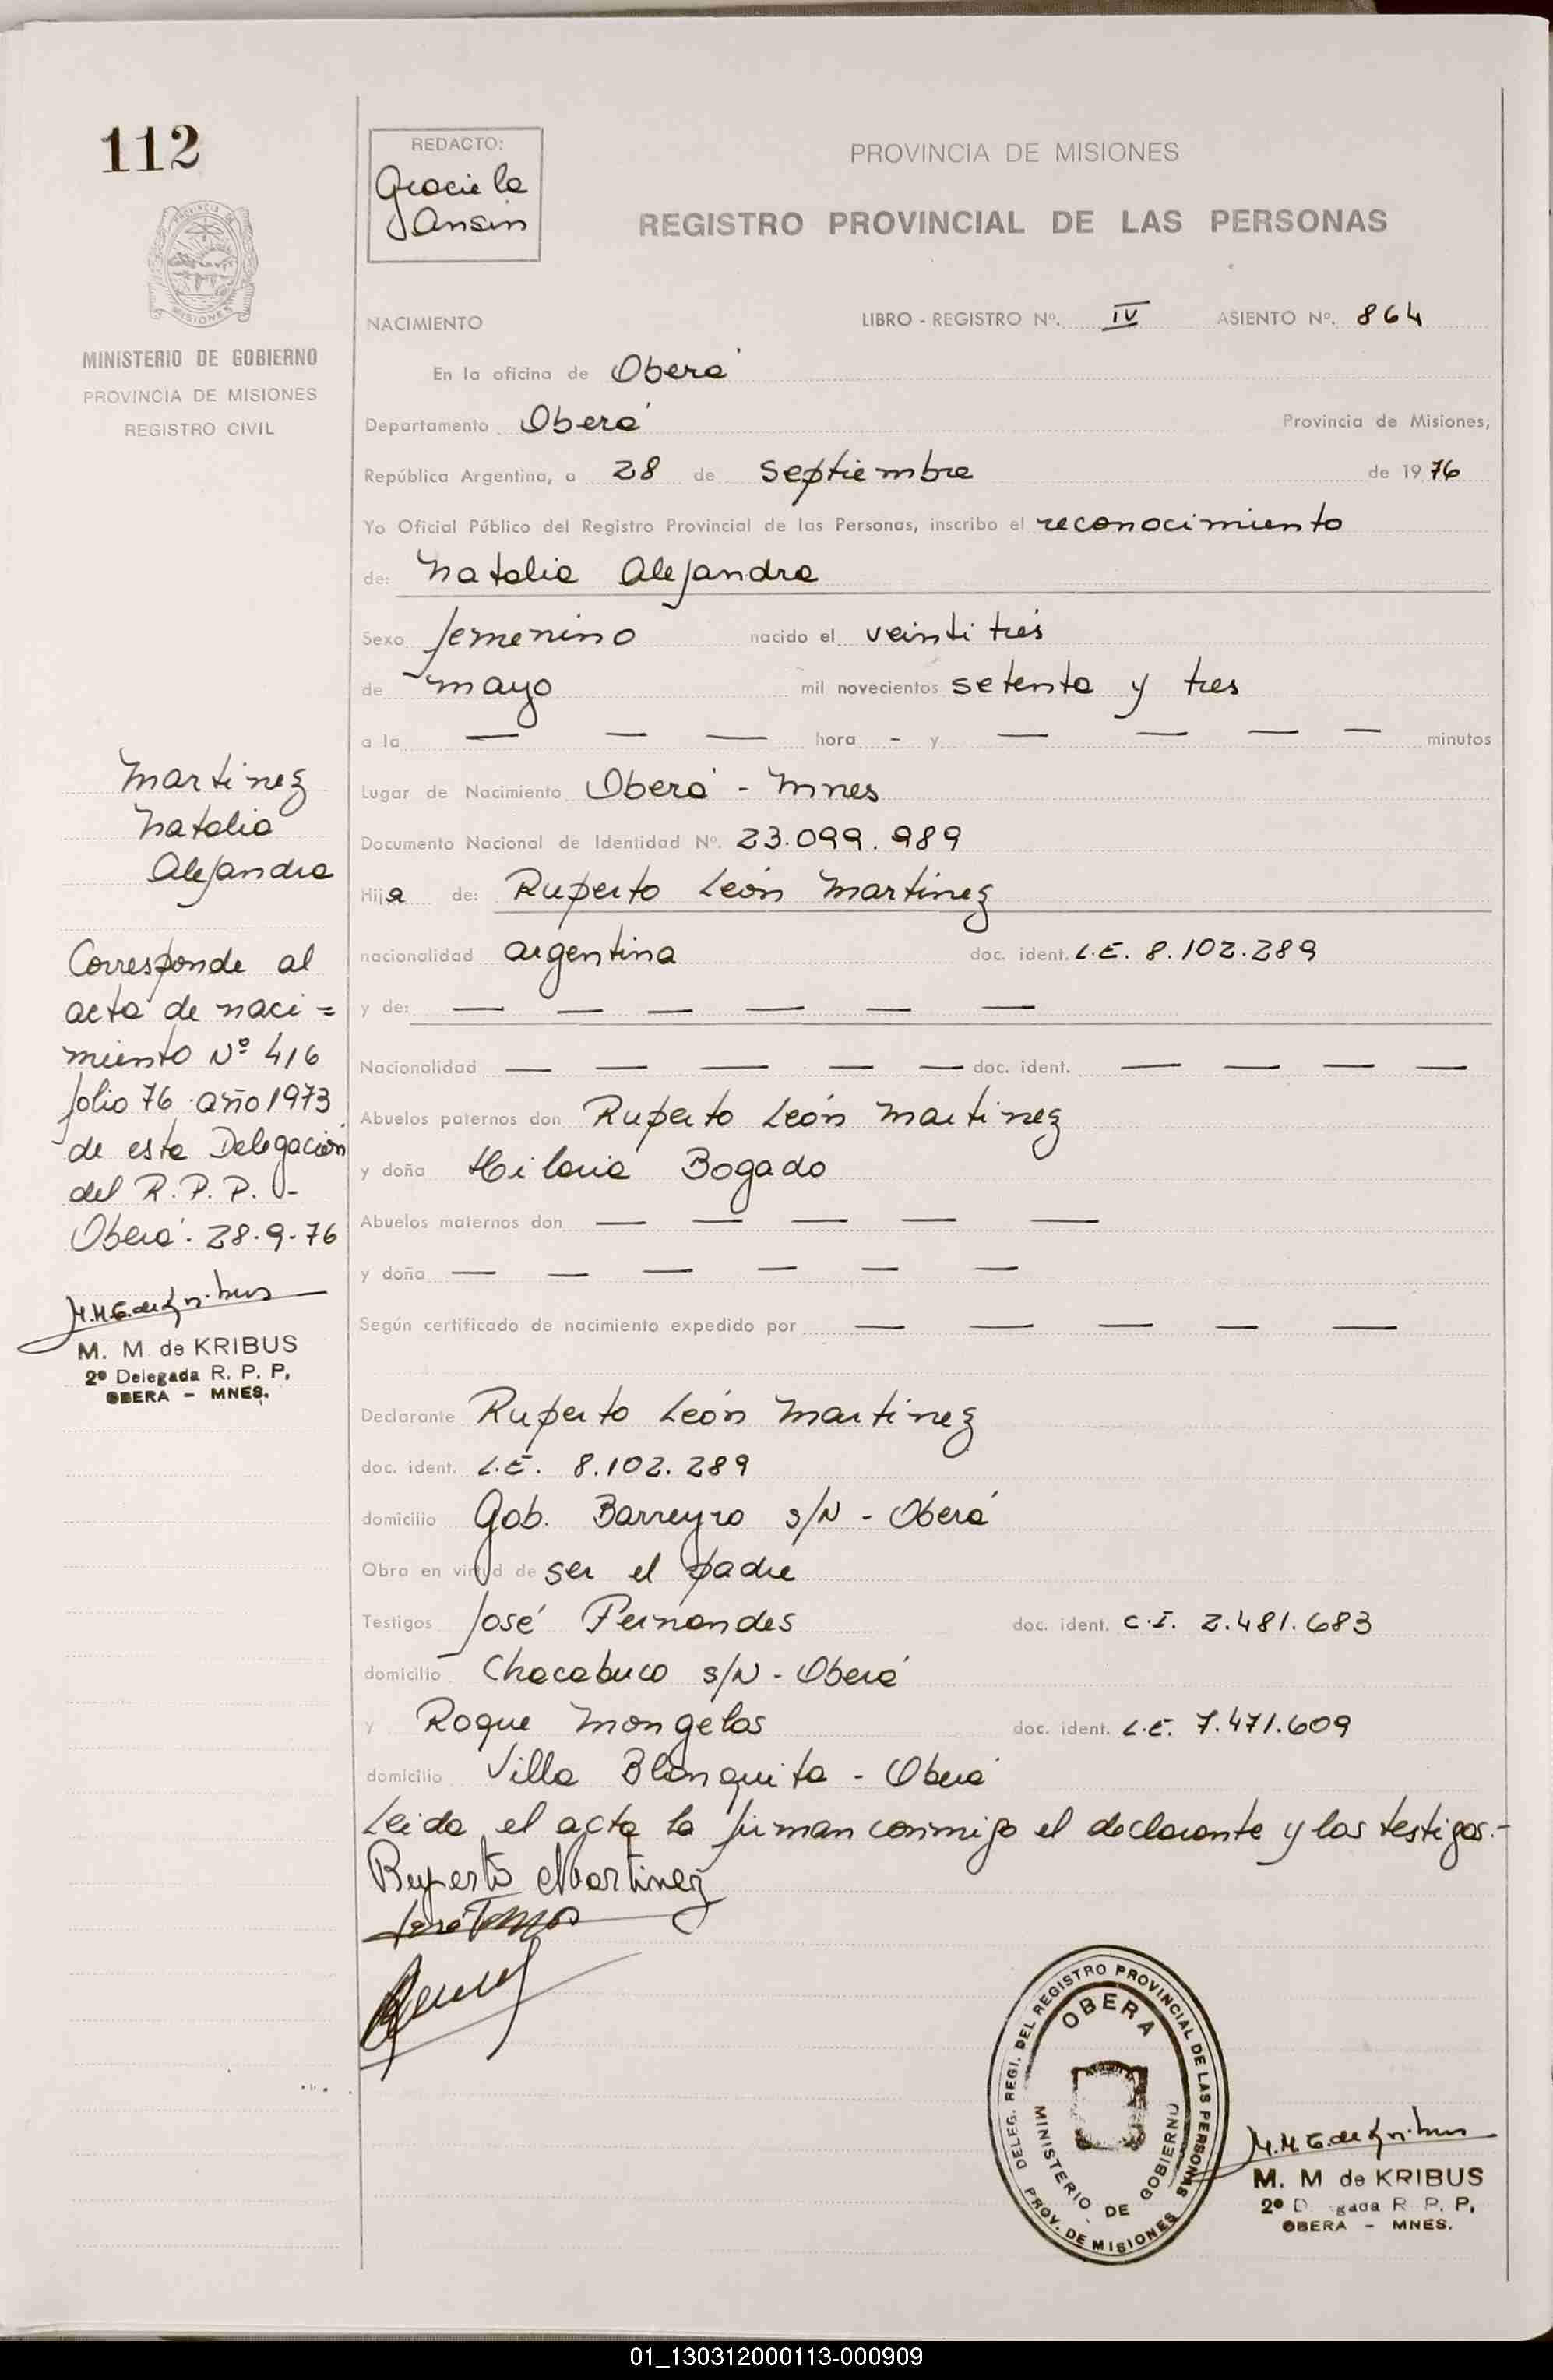 112
REDACTO:
Graciela
Ansin
PROVINCIA DE MISIONES
REGISTRO PROVINCIAL DE LAS PERSONAS
PROVINCIA DE
MISIONES
MINISTERIO DE GOBIERNO
PROVINCIA DE MISIONES
REGISTRO CIVIL
NACIMIENTO LIBRO - REGISTRO Nº. IV ASIENTO Nº. 864
En la oficina de Oberá
Departamento Oberá Provincia de Misiones,
República Argentina, a 28 de septiembre de 1976
Yo Oficial Público del Registro Provincial de las Personas, inscribo el reconocimiento
de: Natalia Alejandra
Sexo femenino nacido el veintitrés
de mayo mil novecientos setenta y tres
a la — — — hora - y — — — — minutos
Lugar de Nacimiento Oberá - Mnes
Documento Nacional de Identidad Nº. 23.099.989
Hija de: Ruperto León Martinez
nacionalidad argentina doc. ident. L.E. 8.102.289
y de: — — — — — —
Nacionalidad — — — — — doc. ident. — — — —
Abuelos paternos don Ruperto León Martinez
y doña Hilaria Bogado
Abuelos maternos don — — — — —
y doña — — — — — —
Según certificado de nacimiento expedido por — — — — —
Declarante Ruperto León Martinez
doc. ident. L.E. 8.102.289
domicilio Gob. Barreyro s/N - Oberá
Obra en virtud de ser el padre
Testigos José Fernandes doc. ident. C.I. 2.481.683
domicilio Chacabuco s/N - Oberá
y Roque Mongelos doc. ident. L.E. 7.471.609
domicilio Villa Blanquita - Oberá
Leida el acta la firman conmigo el declarante y los testigos.-
Ruperto Martinez
Martinez
Natalia
Alejandra
Corresponde al
acta de naci=
miento Nº 416
folio 76 año 1973
de esta Delegación
del R.P.P. -
Oberá. 28-9-76
M. M de KRIBUS
2º Delegada R. P. P,
OBERA - MNES.
DELEG. REGI. DEL REGISTRO PROVINCIAL DE LAS PERSONAS
OBERA
MINISTERIO DE GOBIERNO
PROV. DE MISIONES
M. M de KRIBUS
2º D gada R P. P,
OBERA - MNES.
01_130312000113-000909